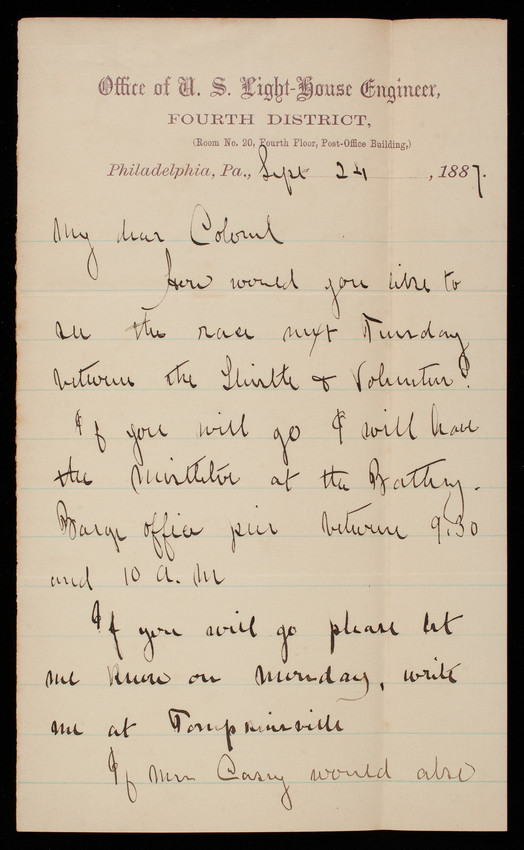 Office of U. S. Light-House Engineer,
FOURTH DISTRICT,
(Room No. 20, Fourth Floor, Post-Office Building,)
Philadelphia, Pa., Sept 24, 1887.
My dear Colonel
How would you like to
see the race next Tuesday
between the Thistle & Volunteer?
If you will go I will have
the Mistletoe at the Battery.
Barge office pier between 9.30
and 10 A. M
If you will go please let
me know on Monday, write
me at Tompkinsville
If Mrs Casey would also